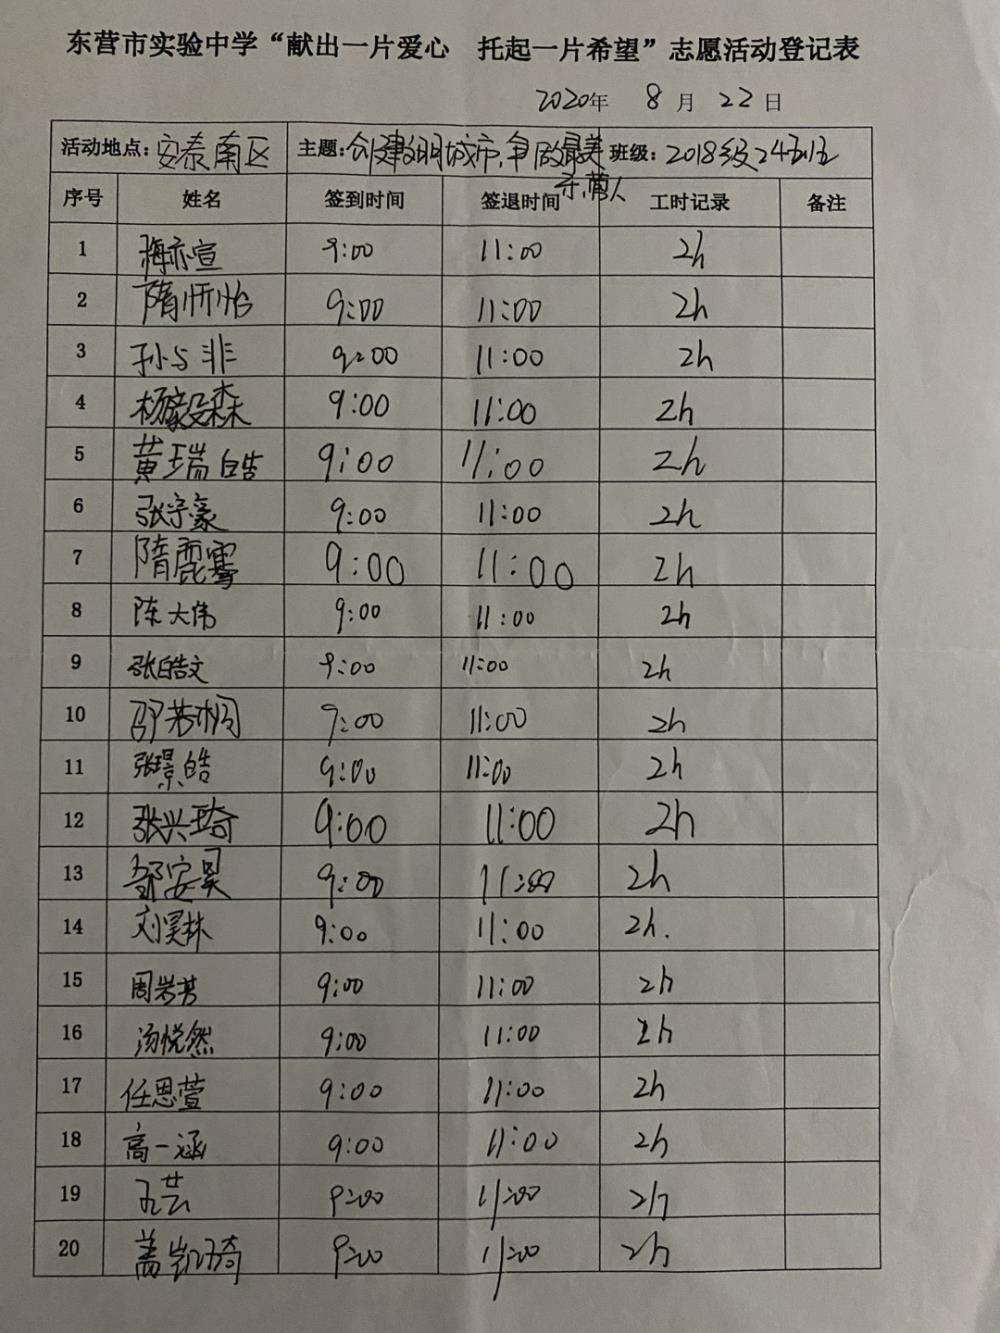 东营市实验中学“献出一片爱心 托起一片希望”志愿活动登记表
2020年 8月 22日
活动地点:安泰南区 主题:创建文明城市,争做最美东营人 班级:2018级24班
序号 姓名 签到时间 签退时间 工时记录 备注
1 梅亦宣 9:00 11:00 2h
2 隋忻怡 9:00 11:00 2h
3 孙与非 9:00 11:00 2h
4 杨毅森 9:00 11:00 2h
5 黄瑞皓 9:00 11:00 2h
6 张宇豪 9:00 11:00 2h
7 隋鹿骞 9:00 11:00 2h
8 陈大伟 9:00 11:00 2h
9 张皓文 9:00 11:00 2h
10 邵芳 9:00 11:00 2h
11 张璟皓 9:00 11:00 2h
12 张兴琦 9:00 11:00 2h
13 邹安昊 9:00 11:00 2h
14 刘昊林 9:00 11:00 2h.
15 周岩芳 9:00 11:00 2h
16 汤悦然 9:00 11:00 2h
17 任思萱 9:00 11:00 2h
18 高一涵 9:00 11:00 2h
19 孔芸 9:00 11:00 2h
20 盖凯琦 9:00 11:00 2h